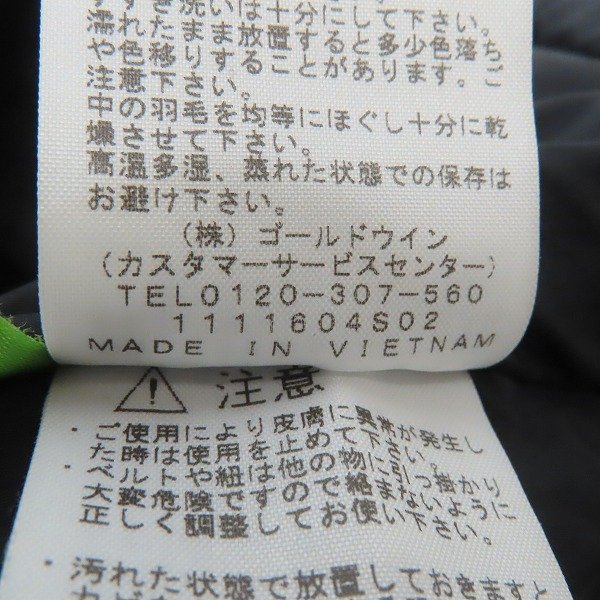 すすぎ洗いは十分にして下さい。
濡れたまま放置すると多少色落ち
や色移りすることがあります。ご
注意下さい。
中の羽毛を均等にほぐし十分に乾
燥させて下さい。
高温多湿、蒸れた状態での保存は
お避け下さい。
(株) ゴールドウイン
(カスタマーサービスセンター)
TEL0120-307-560
1111604S02
MADE IN VIETNAM
注意
・ご使用により皮膚に異常が発生し
た時は使用を止めて下さい。
・ベルトや紐は他の物に引っ掛かり
大変危険ですので絡まないように
正しく調整してお使い下さい。
・汚れた状態で放置しておきますと